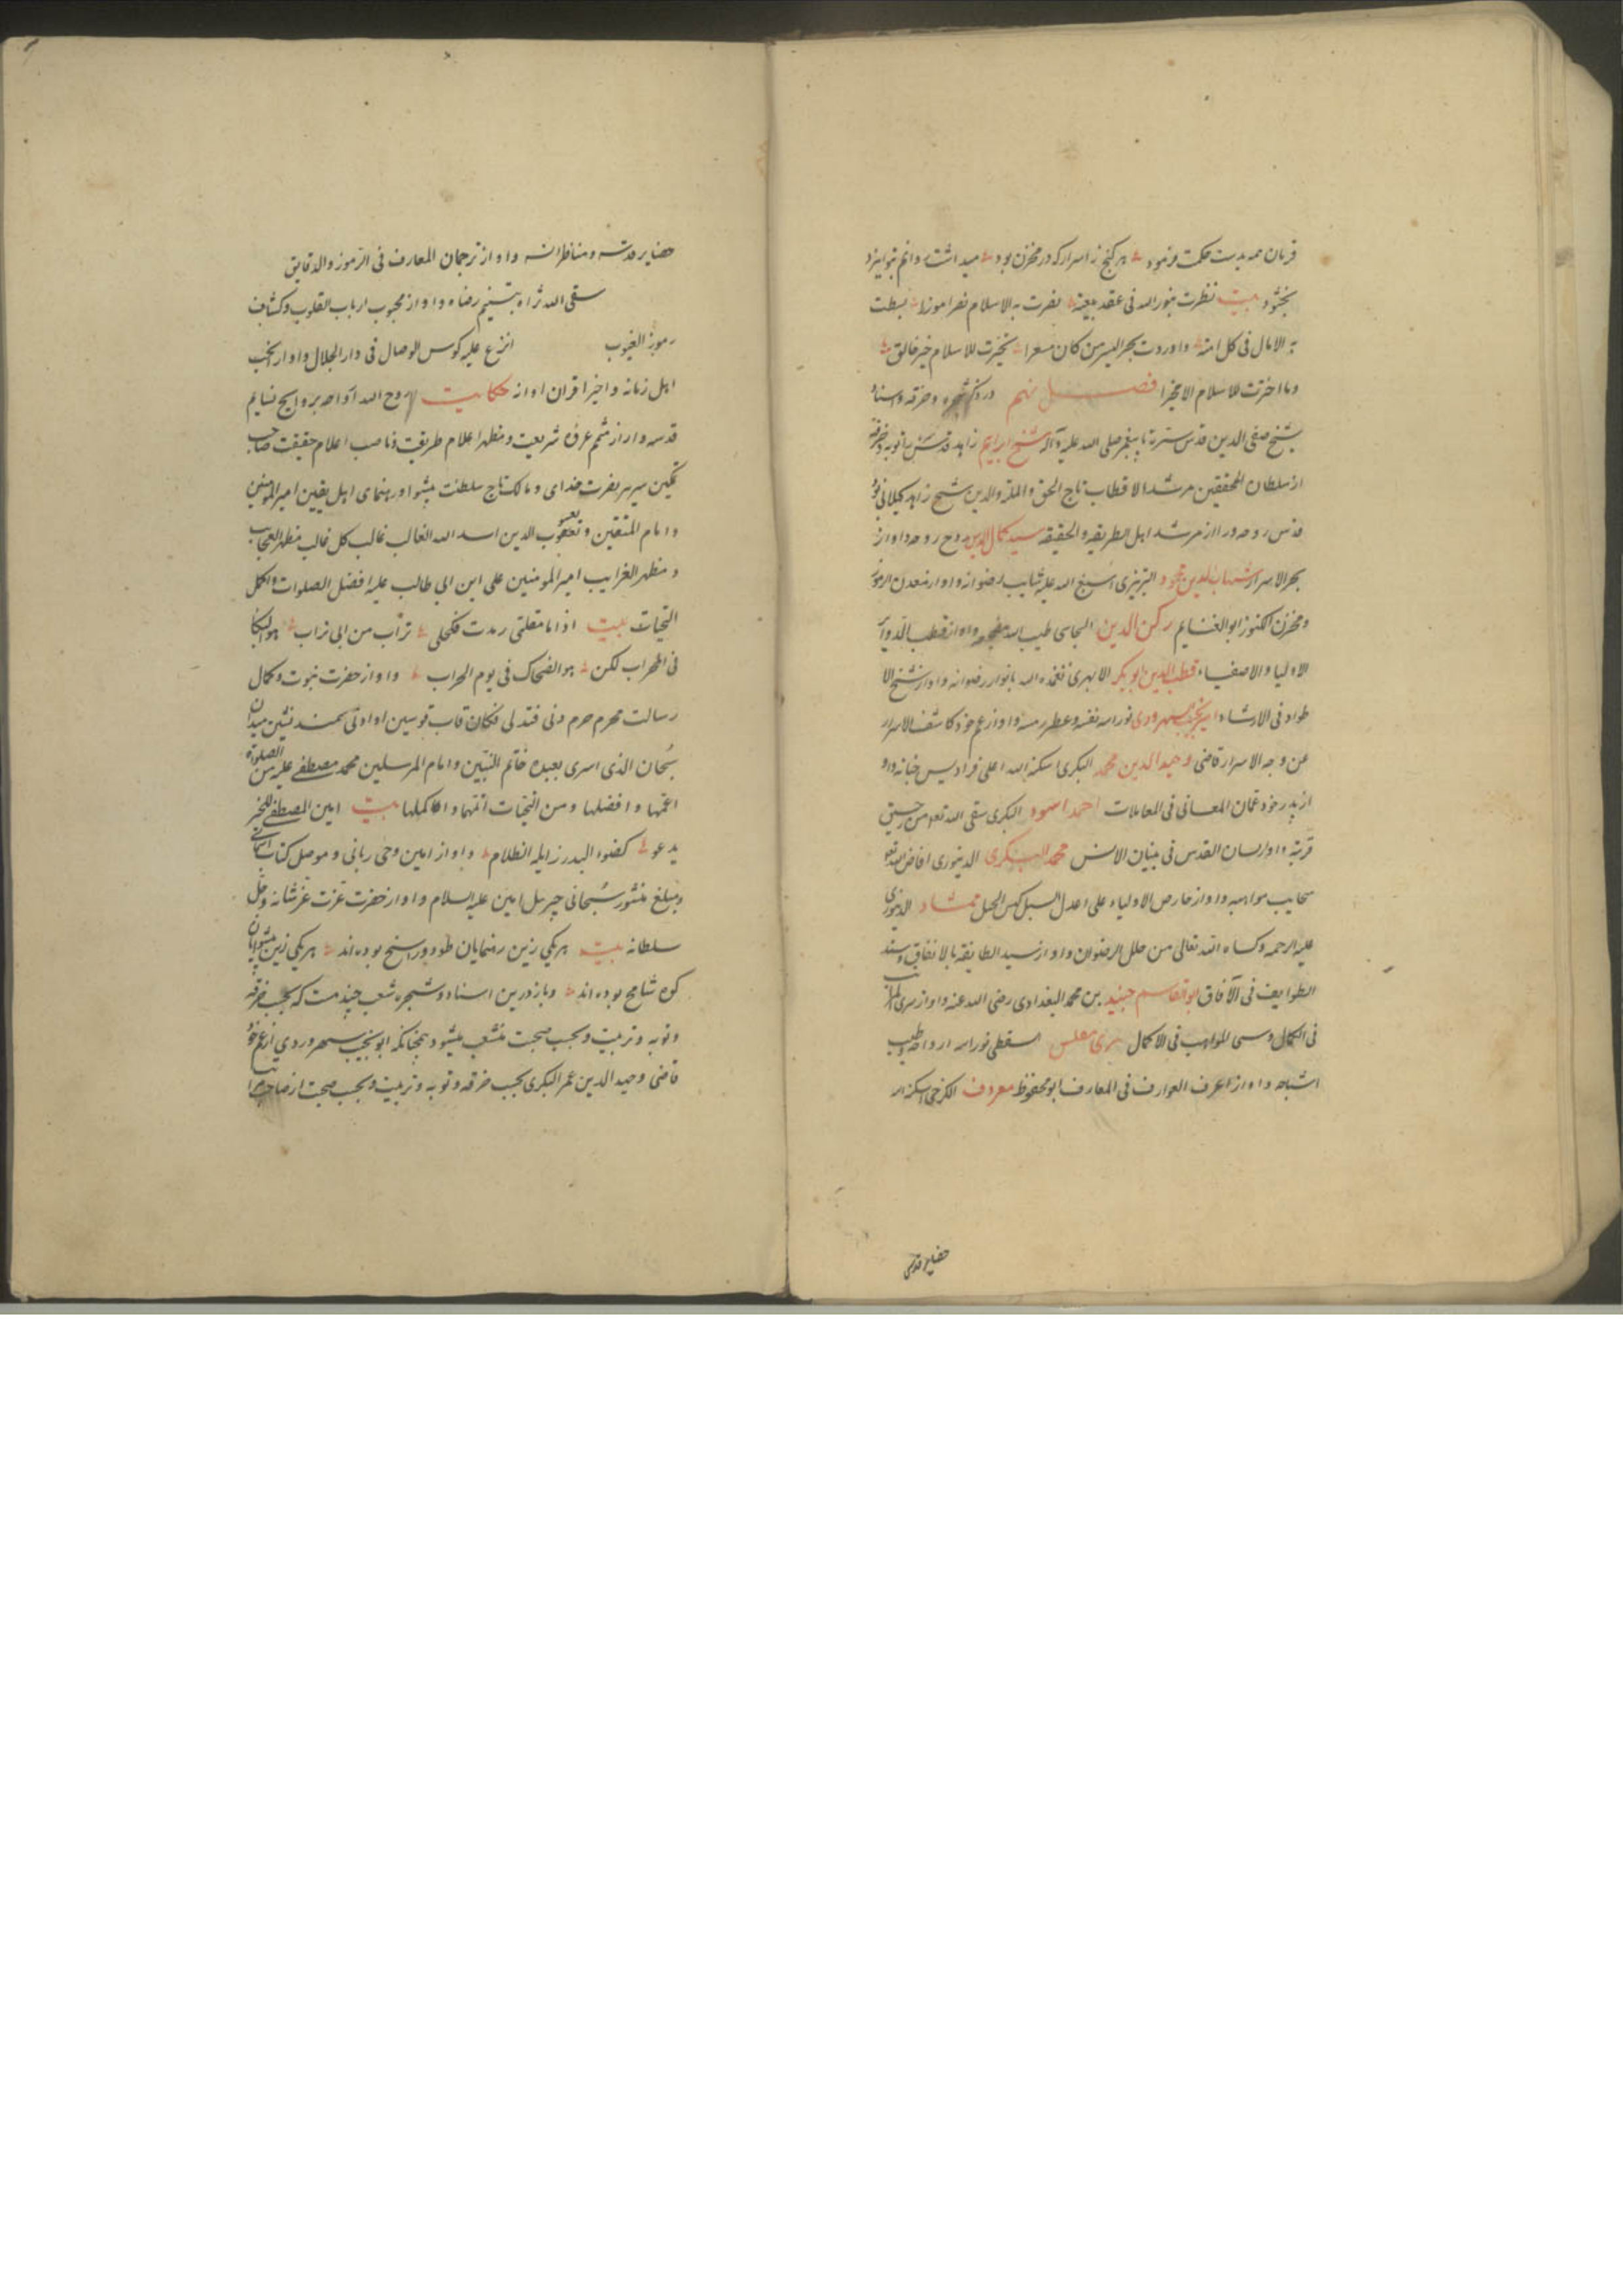 قربان همه بدست حکمت فرمود هر کنج ز اسرار که در مخزن بود میداشت روانم تو ایزد
بخشود بیت نظرت بنور الله فی عقد بیعة نصرت به الاسلام نصرا موزرا بسطت
به الامال فی کل امة واوردت بحر الیسر من کان معسرا تخیرت للاسلام خیر خالق
وما اخترت للاسلام الا مخیرا فصل نهم در ذکر شجره و خرقه و اسناد
شیخ صفی الدین قدس سره تا پیغمبر صلی الله علیه وآله شیخ ابراهیم زاهد قدس سره توبه و خرقه
از سلطان المحققین مرشد الاقطاب تاج الحق والملة والدین شیخ زاهد کیلانی بود
قدس روحه و او را از مرشد اهل الطریقه والحقیقه سید جمال الدین روح روحه و او از
بحر الاسرار شهاب الدین محمود التبریزی اسبغ الله علیه شابیب رضوانه و او از معدن الرموز
ومخزن الکنوز ابو الغنایم رکن الدین السجاسی طیب الله مضجعه و او از قطب الدوایر
الاولیا والاصفیاء قطب الدین ابو بکر الابهری تغمده الله بانوار رضوانه و او از شیخ الا
طواد فی الارشاد ابو نجیب سهروردی نور الله نفسه وعطر رمسه و او از عم خود کاشف الاسرار
عن وجه الاسرار قاضی وحید الدین محمد البکری اسکنه الله اعلی فرادیس جنانه و او
از پدر خود عمان المعانی فی المعاملات احمد اسود البکری سقی الله تعالی من رحیق
قربته و او از لسان القدس فی بنیان الانس محمد البکری الدینوری افاض الله تعالی
سحایب مواهبه و او از حارص الاولیاء علی اعدل السبل کمس الجبل ممشاد الدینوری
علیه الرحمه وکساه الله تعالی من حلل الرضوان و او از سید الطایفه بالاتفاق وسند
الطوایف فی الآفاق ابو القاسم جنید بن محمد البغدادی رضی الله عنه و او از سری المراتب
فی الکمال وسمی المواهب فی الاکمال سری مغلس السقطی نور الله ارواحه وطیب
اشباحه و او از اعرف العوارف فی المعارف ابو محفوظ معروف الکرخی اسکنه الله
حضایر قدسی
حضایر قدسه ومناظر انسه و او از ترجمان المعارف فی الرموز والدقایق
سقی الله ثراه بتسنیم رضاه و او از محبوب ارباب القلوب وکشاف
رموز الغیوب اترع علیه کوس الوصال فی دار الجلال و او از نجب
اهل زمانه و اخیر اقران او از حکایت روح الله ارواحه بروایح نسایم
قدسه و او از متمم عرف شریعت ومظهر اعلام طریقت وناصب اعلام حقیقت صاحب
تمکین سریر نصرت خدای ومالک تاج سلطنت پیشوا و رهنمای اهل یقین امیر المومنین
وامام المتقین ویعسوب الدین اسد الله الغالب غالب کل غالب مظهر العجایب
ومظهر الغرایب امیر المومنین علی ابن ابی طالب علیه افضل الصلوات واکمل
التحیات بیت اذا ما مقلتی رمدت فکحلی تراب من ابی تراب هو البکا
فی المحراب لکن هو الضحاک فی یوم الحراب و او از حضرت نبوت وکمال
رسالت محرم حرم دنی فتدلی فکان قاب قوسین او ادنی سمند نشین میدان
سبحان الذی اسری بعبده خاتم النبیین وامام المرسلین محمد مصطفی علیه من الصلوة
اعمها وافضلها ومن التحیات اتمها واکملها بیت امین المصطفی للخیر
یدعو کضوء البدر زایله الظلام و او از امین وحی ربانی وموصل کتاب آسمانی
ومبلغ منشور سبحانی جبرییل امین علیه السلام و او از حضرت عزت عز شانه وجل
سلطانه بیت هر یکی زین رهنمایان طود راسخ بوده اند هر یکی زین پیشوایان
کوه شامخ بوده اند و باز درین اسناد و شجره شعب چند هست که بحسب خرقه
و توبه و تربیت و بحسب صحبت منشعب میشود چنانکه ابو نجیب سهروردی از عم خود
قاضی وحید الدین عمر البکری بحسب خرقه و توبه و تربیت و بحسب صحبت از صاحب